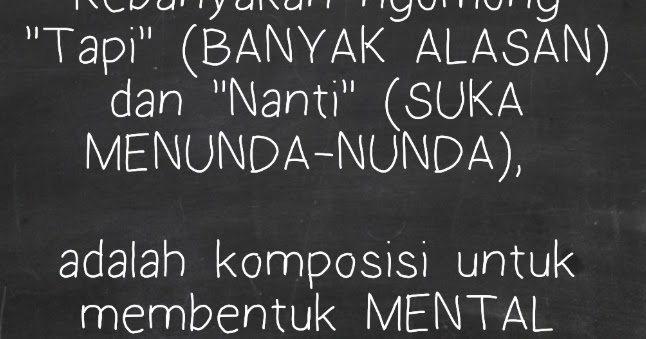 Kebanyakan ngomong
"Tapi" (BANYAK ALASAN)
dan "Nanti" (SUKA
MENUNDA-NUNDA),
adalah komposisi untuk
membentuk MENTAL